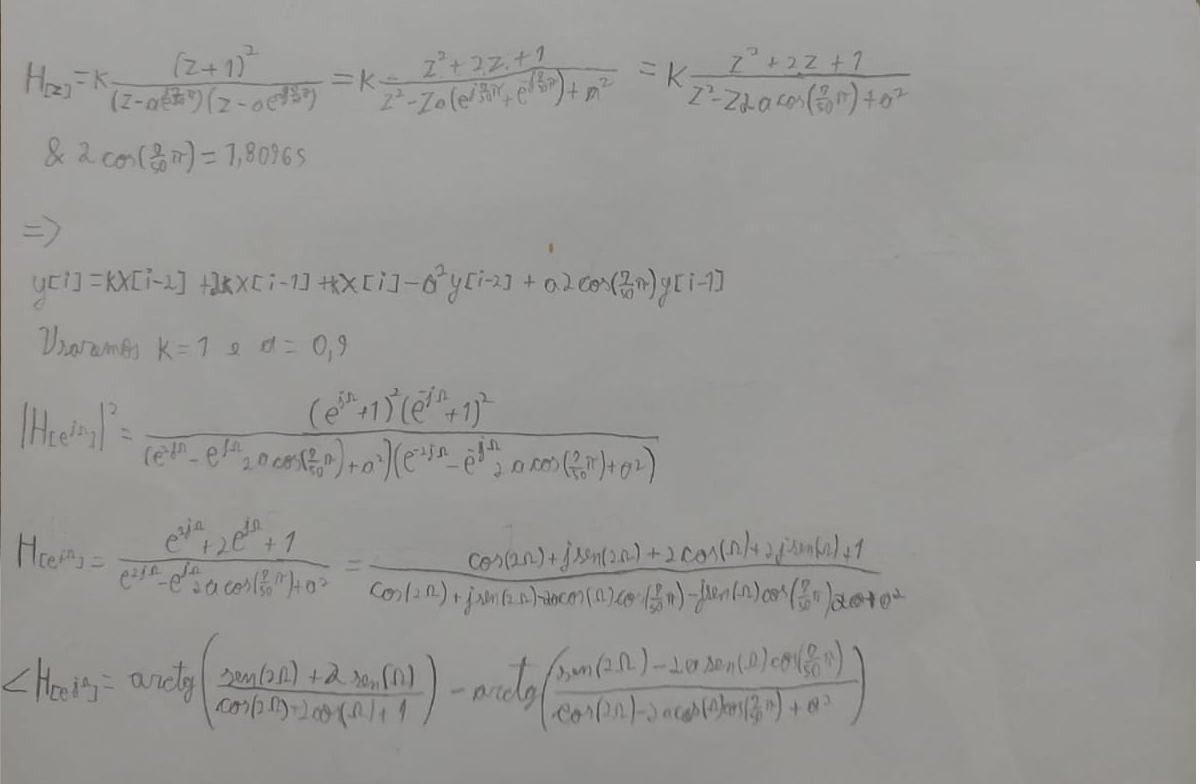 H[z]=K (z+1)² / (z-ae^{j7/50π})(z-ae^{-j7/50π}) = K z²+2z+1 / z²-za(e^{j7/50π}+e^{-j7/50π})+a² = K z²+2z+1 / z²-z2a cos(7/50π)+a²
& 2 cos(7/50π)=1,80965
=>
y[i]=kx[i-2]+2kx[i-1]+kx[i]-a²y[i-2]+a2cos(7/50π)y[i-1]
Usaremos k=1 e a=0,9
|H[e^{jΩ}]|²= (e^{jΩ}+1)²(e^{-jΩ}+1)² / (e^{2jΩ}-e^{jΩ}2a cos(7/50π)+a²)(e^{-2jΩ}-e^{-jΩ}2a cos(7/50π)+a²)
H[e^{jΩ}]= e^{2jΩ}+2e^{jΩ}+1 / e^{2jΩ}-e^{jΩ}2a cos(7/50π)+a² = cos(2Ω)+jsen(2Ω)+2cos(Ω)+2jsen(Ω)+1 / cos(2Ω)+jsen(2Ω)-2acos(Ω)cos(7/50π)-jsen(Ω)cos(7/50π)2a+a²
<H[e^{jΩ}]= arctg(sen(2Ω)+2sen(Ω) / cos(2Ω)+2cos(Ω)+1) - arctg(sen(2Ω)-2asen(Ω)cos(7/50π) / cos(2Ω)-2acos(Ω)cos(7/50π)+a²)